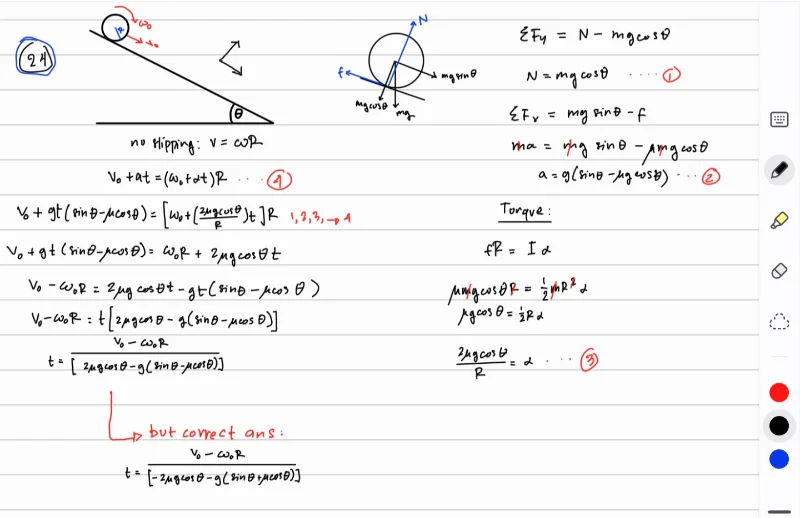 (24)
R
ω₀
v₀
θ
no slipping: v = ωR
V₀ + at = (ω₀ + αt) R ···· ④
V₀ + gt(sinθ - μcosθ) = [ω₀ + (2μgcosθ/R)t] R 1, 2, 3, → 4
V₀ + gt(sinθ - μcosθ) = ω₀R + 2μgcosθt
V₀ - ω₀R = 2μg cosθt - gt(sinθ - μcosθ)
V₀ - ω₀R = t[2μgcosθ - g(sinθ - μcosθ)]
t = V₀ - ω₀R / [2μgcosθ - g(sinθ - μcosθ)]
but correct ans:
t = V₀ - ω₀R / [-2μgcosθ - g(sinθ + μcosθ)]
N
f
mgsinθ
mgcosθ
mg
ΣFy = N - mgcosθ
N = mgcosθ ···· ①
ΣFx = mg sinθ - f
ma = mg sinθ - μmg cosθ
a = g(sinθ - μgcosθ) ··· ②
Torque:
fR = I α
μmgcosθR = ½mR² α
μgcosθ = ½Rα
2μgcosθ/R = α ···· ③